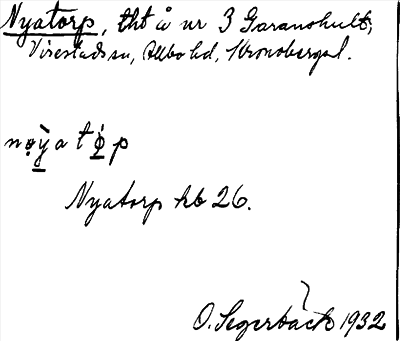 Nyatorp, tht å nr 3 Garanshult,
Virestads sn, Allbo hd, Kronobergs l.
nyatp
Nyatorp hb 26.
O. Segerbäck 1932